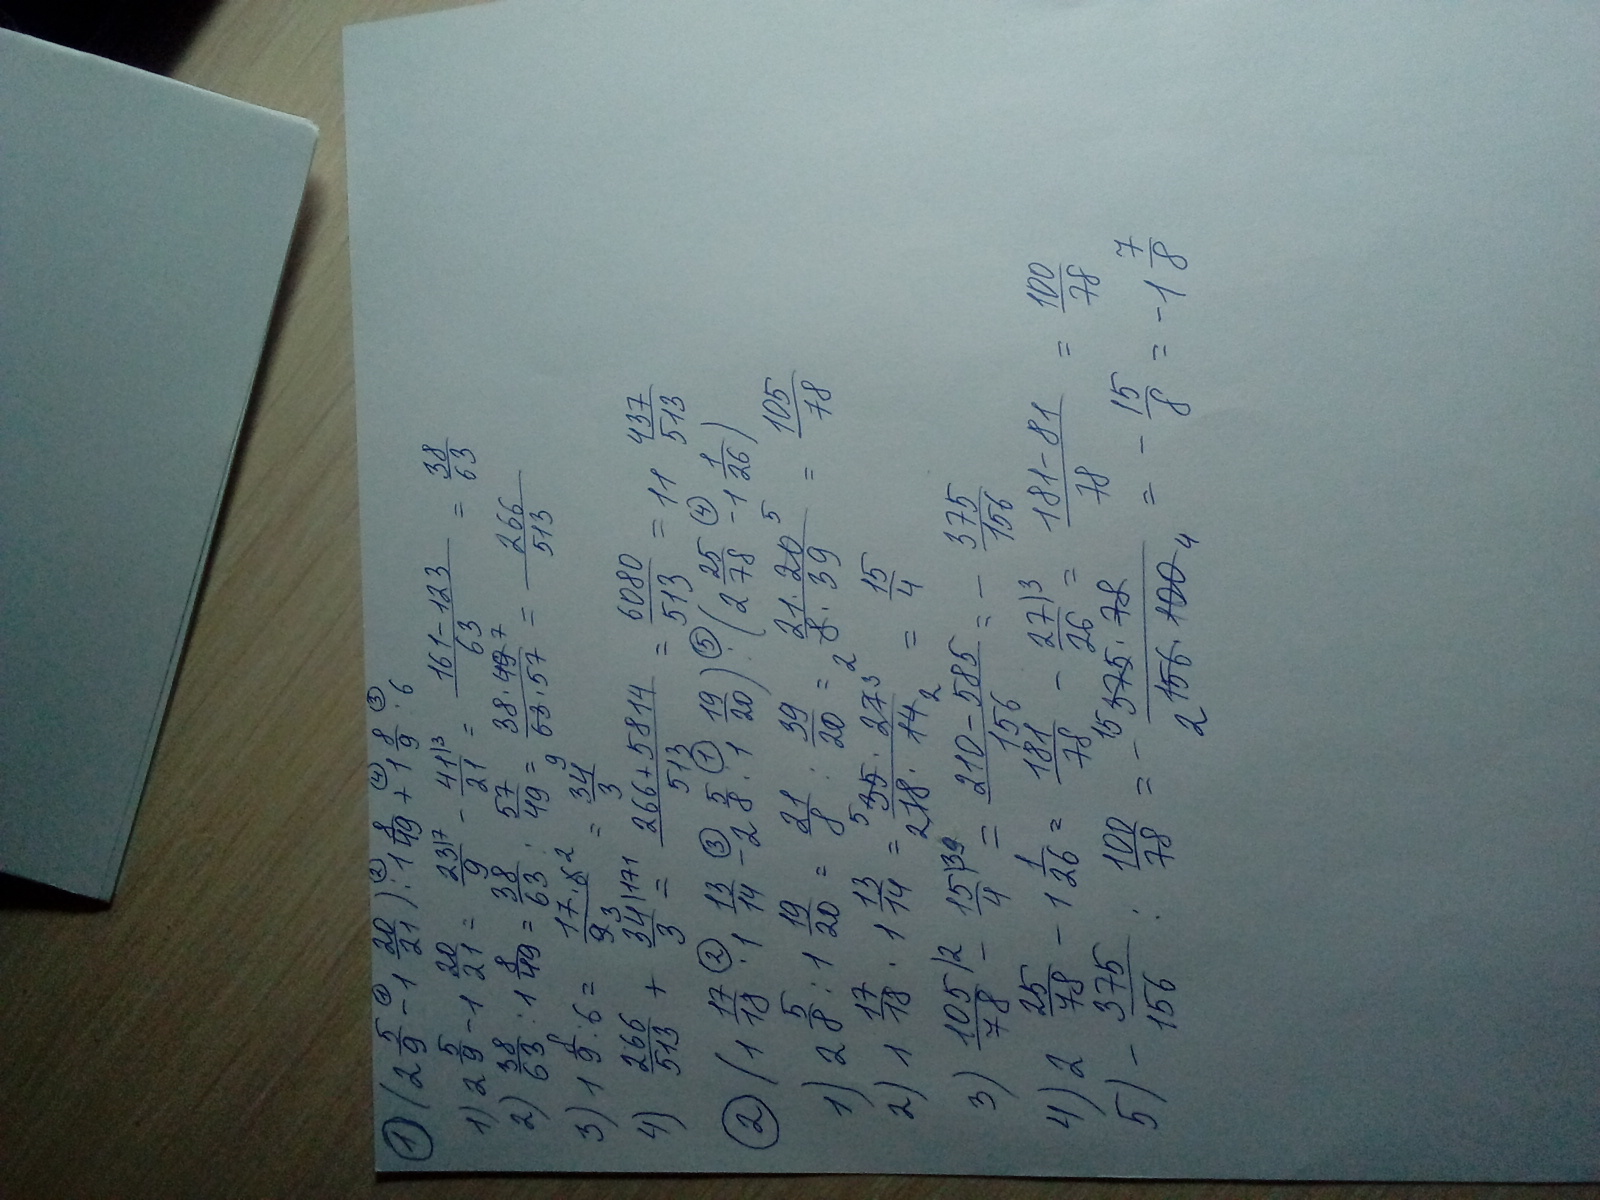 ① (2 5/9 - 1 20/21) : 1 8/49 + 1 8/9 · 6
1) 2 5/9 - 1 20/21 = 23/9 |7 - 41/21 |3 = (161-123)/63 = 38/63
2) 38/63 : 1 8/49 = 38/63 : 57/49 = (38·49 7)/(63·57 9) = 266/513
3) 1 8/9 · 6 = (17·6 2)/(9 3) = 34/3
4) 266/513 + 34/3 |171 = (266+5814)/513 = 6080/513 = 11 437/513
② (1 17/18 · 1 13/14 - 2 5/8 : 1 19/20) : (2 25/78 - 1 1/26)
1) 2 5/8 : 1 19/20 = 21/8 : 39/20 = (21·20 5)/(8·39 2) = 105/78
2) 1 17/18 · 1 13/14 = (5 35·27 3)/(2 18·14 2) = 15/4
3) 105/78 |2 - 15/4 |39 = (210-585)/156 = - 375/156
4) 2 25/78 - 1 1/26 = 181/78 - 27/26 |3 = (181-81)/78 = 100/78
5) - 375/156 : 100/78 = - (15 375·78)/(2 156·100 4) = - 15/8 = -1 7/8